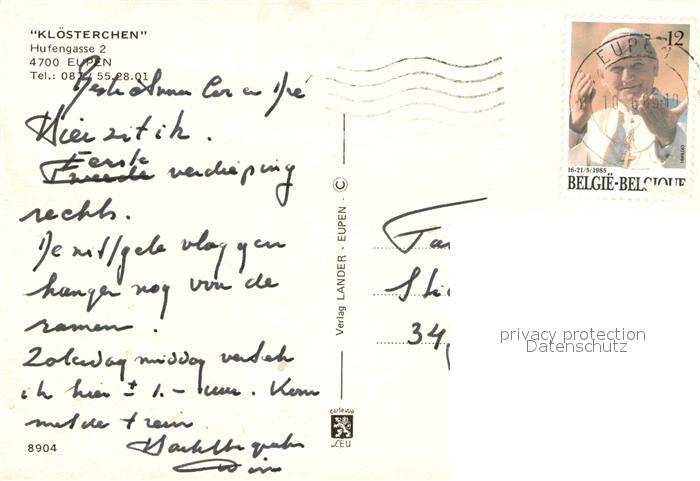 "KLÖSTERCHEN"
Hufengasse 2
4700 EUPEN
Tel.: 087/55.28.01
Beste
Hier zit ik.
Eerste
Tweede verdieping
rechts.
De wit/gele vlaggen
hangen nog van de
ramen.
Zaterdag middag vertrek
ik hier ± 1.- uur. Kom
met de trein.
Wim
8904
Verlag LANDER - EUPEN - ©
carte vue
LEU
EUPEN
12
16-21/5/1985
BELGIË-BELGIQUE
Fa
34
privacy protection
Datenschutz